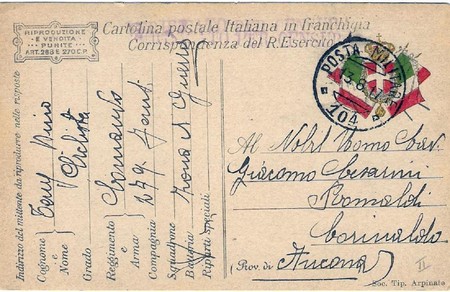 RIPRODUZIONE
E VENDITA
PUNITE
ART. 285 E 270 C.P.
Cartolina postale Italiana in franchigia
Corrispondenza del R. Esercito
POSTA MILITARE
104
Indirizzo del mittente da riprodurre nelle risposte
Cognome e Nome
Dino
Grado
Ciclista
Reggimento e Arma
Comando
Compagnia
Squadrone
Batteria
Zona di Guerra
Riparti speciali
Al Nobil Uomo Cav.
Giacomo Cesarini
Romaldi
Corinaldo
(Prov. di Ancona)
II
Soc. Tip. Arpinate